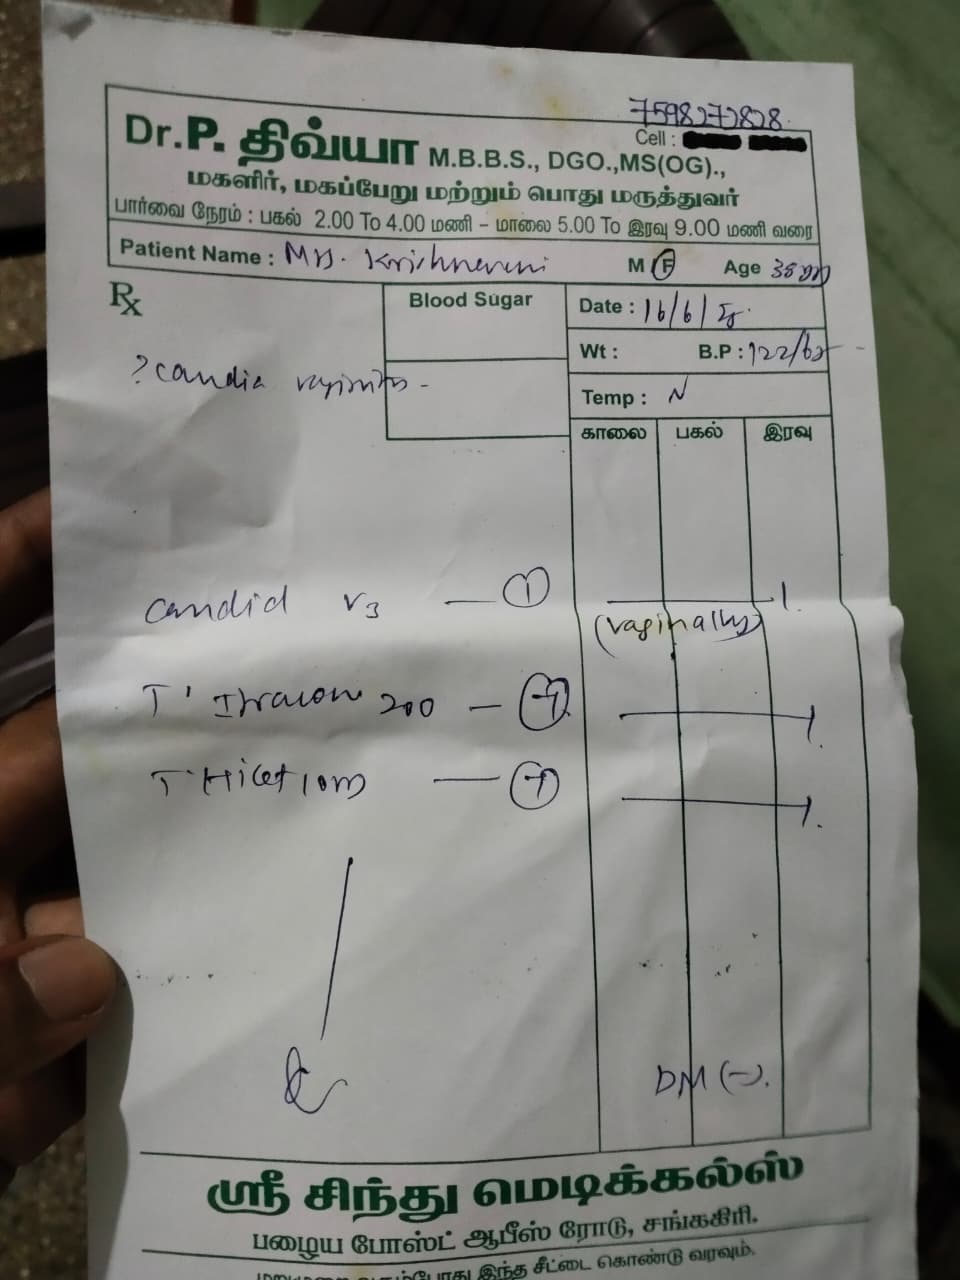 7598272828
Cell :
Dr.P. திவ்யா M.B.B.S., DGO.,MS(OG).,
மகளிர், மகப்பேறு மற்றும் பொது மருத்துவர்
பார்வை நேரம் : பகல் 2.00 To 4.00 மணி - மாலை 5.00 To இரவு 9.00 மணி வரை
Patient Name : Mrs. Krishnaveni M F Age 38
Rx Blood Sugar Date : 16/6/
Wt : B.P : 122/
? candia vaginitis -
Temp : N
காலை பகல் இரவு
candid V3 — 1 1.
(vaginally)
T' Itracon 200 — 7 1.
T' Hicet 10m — 7 1.
DM (-).
ஸ்ரீ சிந்து மெடிக்கல்ஸ்
பழைய போஸ்ட் ஆபீஸ் ரோடு, சங்ககிரி.
மறுமுறை வரும்போது இந்த சீட்டை கொண்டு வரவும்.